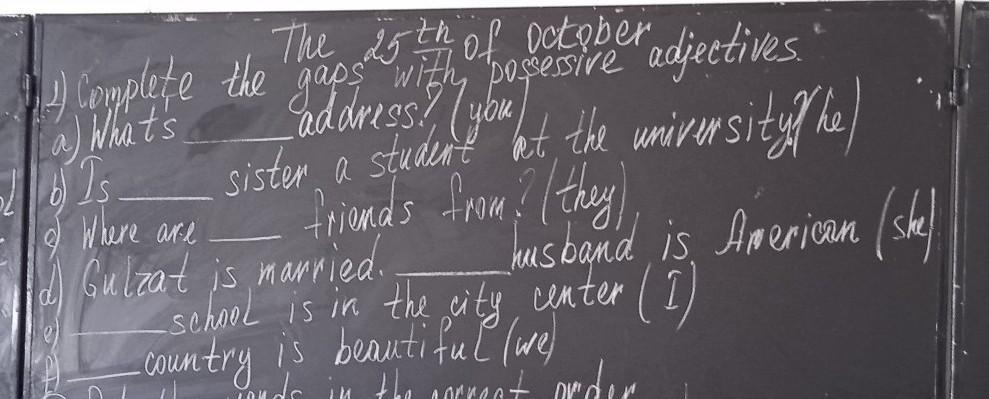 The 25th of October
1) Complete the gaps with possessive adjectives.
a) Whats ____ address? (you)
b) Is ____ sister a student at the university? (he)
c) Where are ____ friends from? (they)
d) Gulzat is married. ____ husband is American (she)
e) ____ school is in the city center (I)
f) ____ country is beautiful (we)
words in the correct order